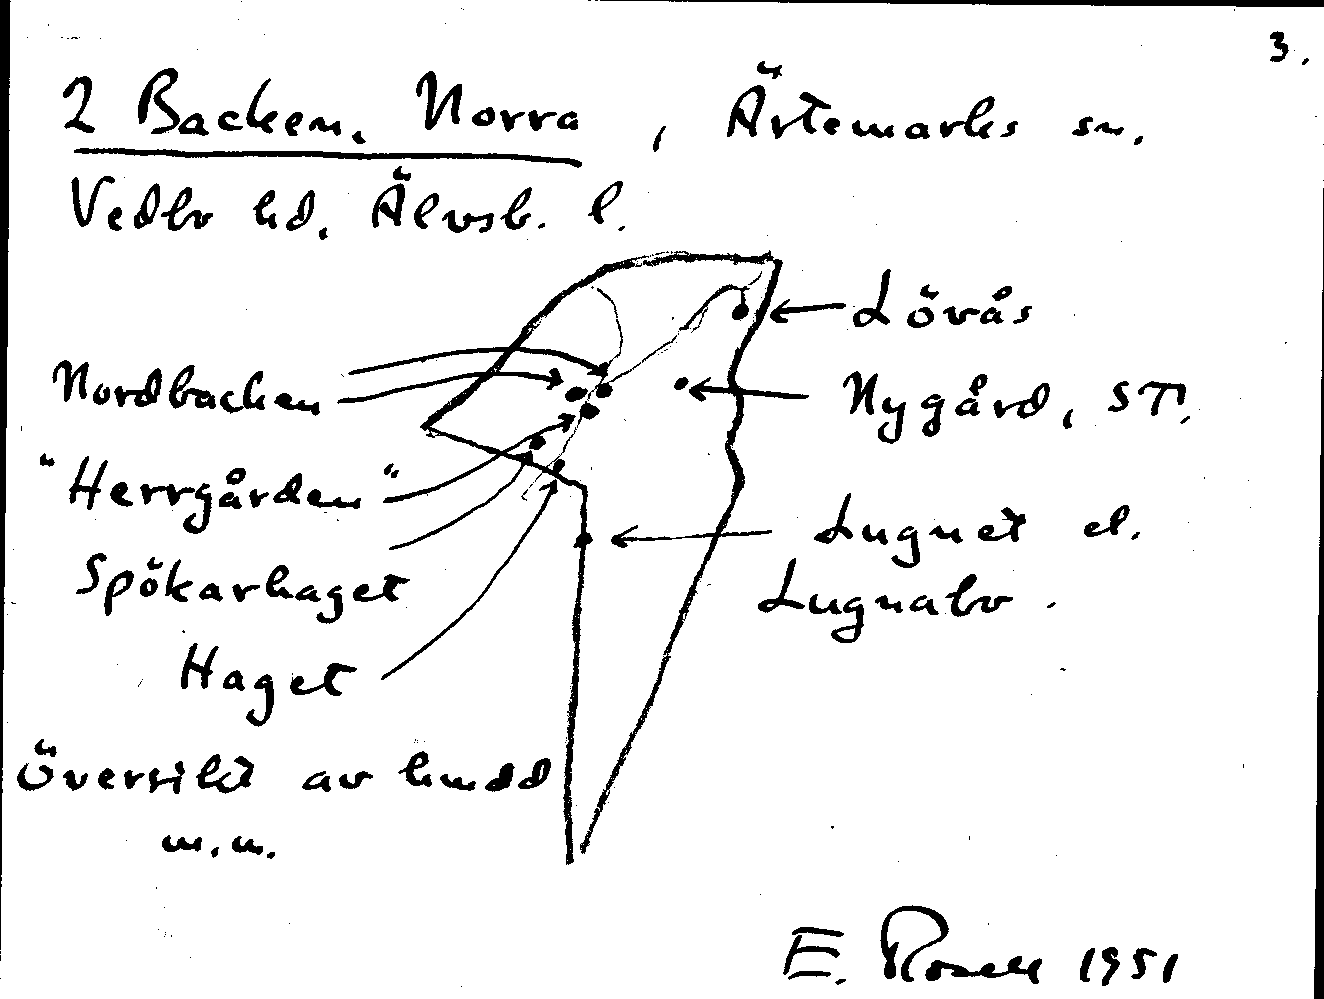 3.
2 Backen, Norra, Ärtemarks sn.
Vedbo hd. Älvsb. l.
Lövås
Nordbacken
Nygård, ST.
"Herrgården"
Lugnet el.
Spökarhaget
Lugnabo.
Haget
Översikt av hmdd
m.m.
E. Rosell 1951